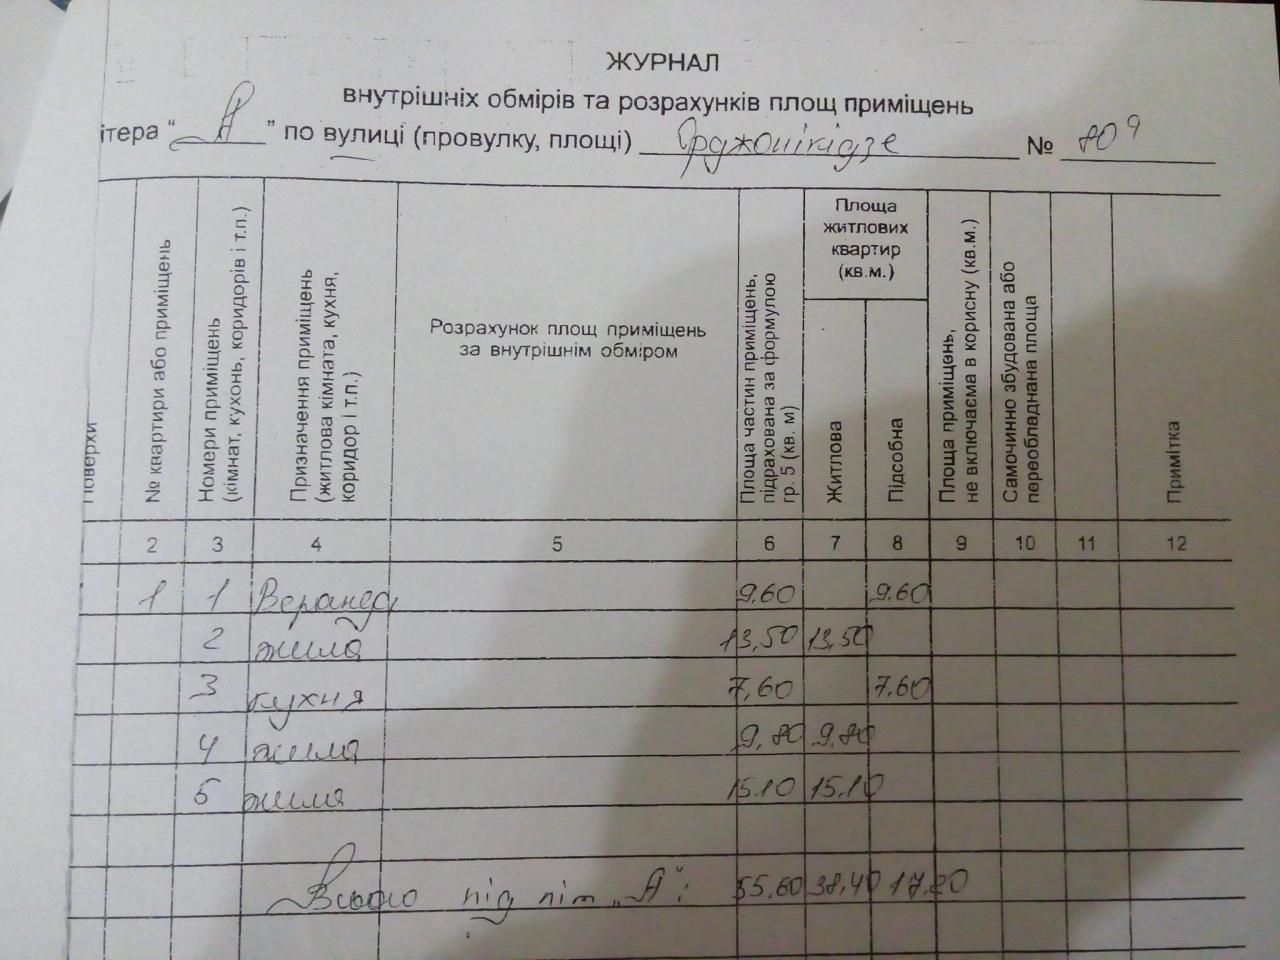 ЖУРНАЛ
внутрішніх обмірів та розрахунків площ приміщень
ітера "А" по вулиці (провулку, площі) Орджонікідзе №
Поверхи
№ квартири або приміщень
Номери приміщень
(кімнат, кухонь, коридорів і т.п.)
Призначення приміщень
(житлова кімната, кухня,
коридор і т.п.)
Розрахунок площ приміщень
за внутрішнім обміром
Площа частин приміщень,
підрахована за формулою
гр. 5 (кв. м)
Площа
житлових
квартир
(кв.м.)
Житлова
Підсобна
Площа приміщень,
не включаєма в корисну (кв.м.)
Самочинно збудована або
переобладнана площа
Примітка
2 3 4 5 6 7 8 9 10 11 12
1 1 Веранда 9.60 9.60
2 жила 13,50 13,50
3 кухня 7,60 7.60
4 жила 9,80 9.80
5 жила 15.10 15.10
Всього під літ „А": 55,60 38,40 17,20